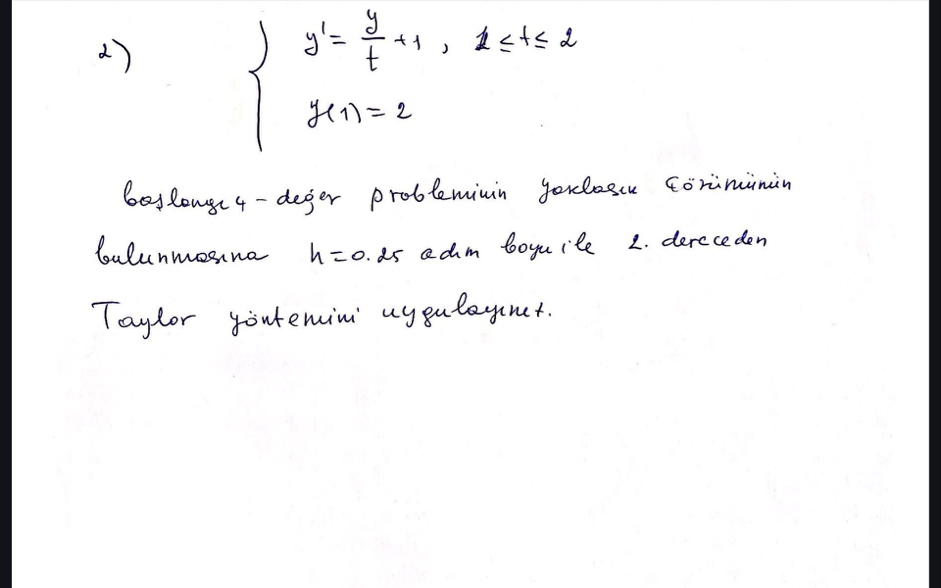 2) { y' = y/t + 1 , 1 ≤ t ≤ 2
y(1) = 2
başlangıç - değer probleminin yaklaşık çözümünün
bulunmasına h = 0.25 adım boyu ile 2. dereceden
Taylor yöntemini uygulayınız.